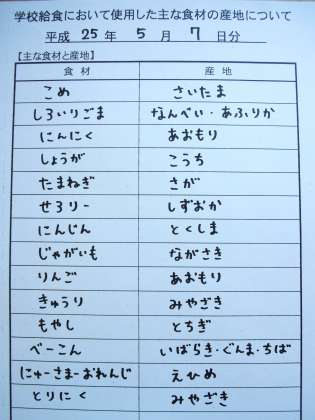 学校給食において使用した主な食材の産地について
平成 25 年 5 月 7 日分
【主な食材と産地】
食材 産地
こめ さいたま
しろいりごま なんべい・あふりか
にんにく あおもり
しょうが こうち
たまねぎ さが
せろりー しずおか
にんじん とくしま
じゃがいも ながさき
りんご あおもり
きゅうり みやざき
もやし とちぎ
べーこん いばらき・ぐんま・ちば
にゅーさまーおれんじ えひめ
とりにく みやざき